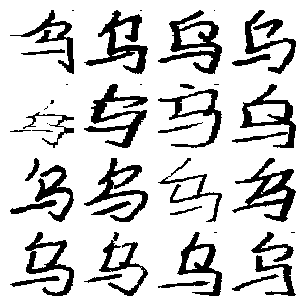 乌乌乌乌
乌乌乌乌
乌乌乌乌
乌乌乌乌